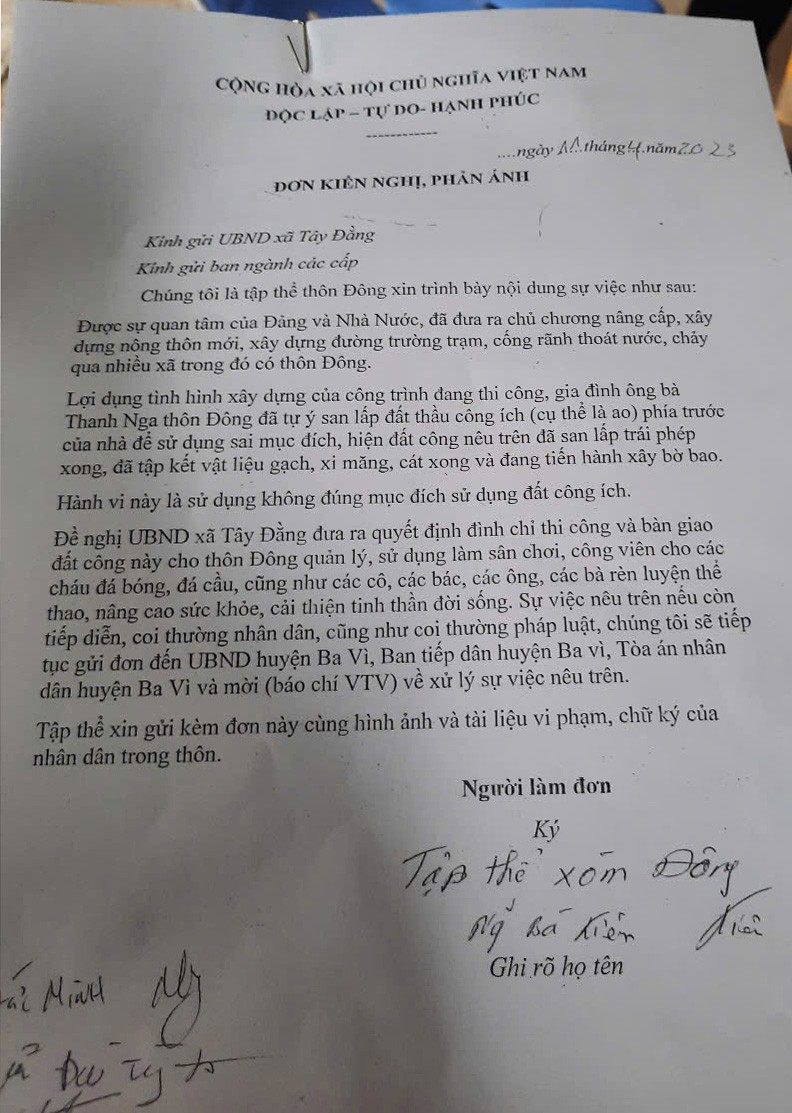 CỘNG HÒA XÃ HỘI CHỦ NGHĨA VIỆT NAM
ĐỘC LẬP – TỰ DO- HẠNH PHÚC
------------
....ngày 11.tháng 4.năm 2023
ĐƠN KIẾN NGHỊ, PHẢN ÁNH
Kính gửi UBND xã Tây Đằng
Kính gửi ban ngành các cấp
Chúng tôi là tập thể thôn Đông xin trình bày nội dung sự việc như sau:
Được sự quan tâm của Đảng và Nhà Nước, đã đưa ra chủ chương nâng cấp, xây
dựng nông thôn mới, xây dựng đường trường trạm, cống rãnh thoát nước, chảy
qua nhiều xã trong đó có thôn Đông.
Lợi dụng tình hình xây dựng của công trình đang thi công, gia đình ông bà
Thanh Nga thôn Đông đã tự ý san lấp đất thầu công ích (cụ thể là ao) phía trước
của nhà để sử dụng sai mục đích, hiện đất công nêu trên đã san lấp trái phép
xong, đã tập kết vật liệu gạch, xi măng, cát xong và đang tiến hành xây bờ bao.
Hành vi này là sử dụng không đúng mục đích sử dụng đất công ích.
Đề nghị UBND xã Tây Đằng đưa ra quyết định đình chỉ thi công và bàn giao
đất công này cho thôn Đông quản lý, sử dụng làm sân chơi, công viên cho các
cháu đá bóng, đá cầu, cũng như các cô, các bác, các ông, các bà rèn luyện thể
thao, nâng cao sức khỏe, cải thiện tinh thần đời sống. Sự việc nêu trên nếu còn
tiếp diễn, coi thường nhân dân, cũng như coi thường pháp luật, chúng tôi sẽ tiếp
tục gửi đơn đến UBND huyện Ba Vì, Ban tiếp dân huyện Ba vì, Tòa án nhân
dân huyện Ba Vì và mời (báo chí VTV) về xử lý sự việc nêu trên.
Tập thể xin gửi kèm đơn này cùng hình ảnh và tài liệu vi phạm, chữ ký của
nhân dân trong thôn.
Người làm đơn
Ký
Tập thể xóm Đông
Bá Kiên Kiên
Ghi rõ họ tên
Minh